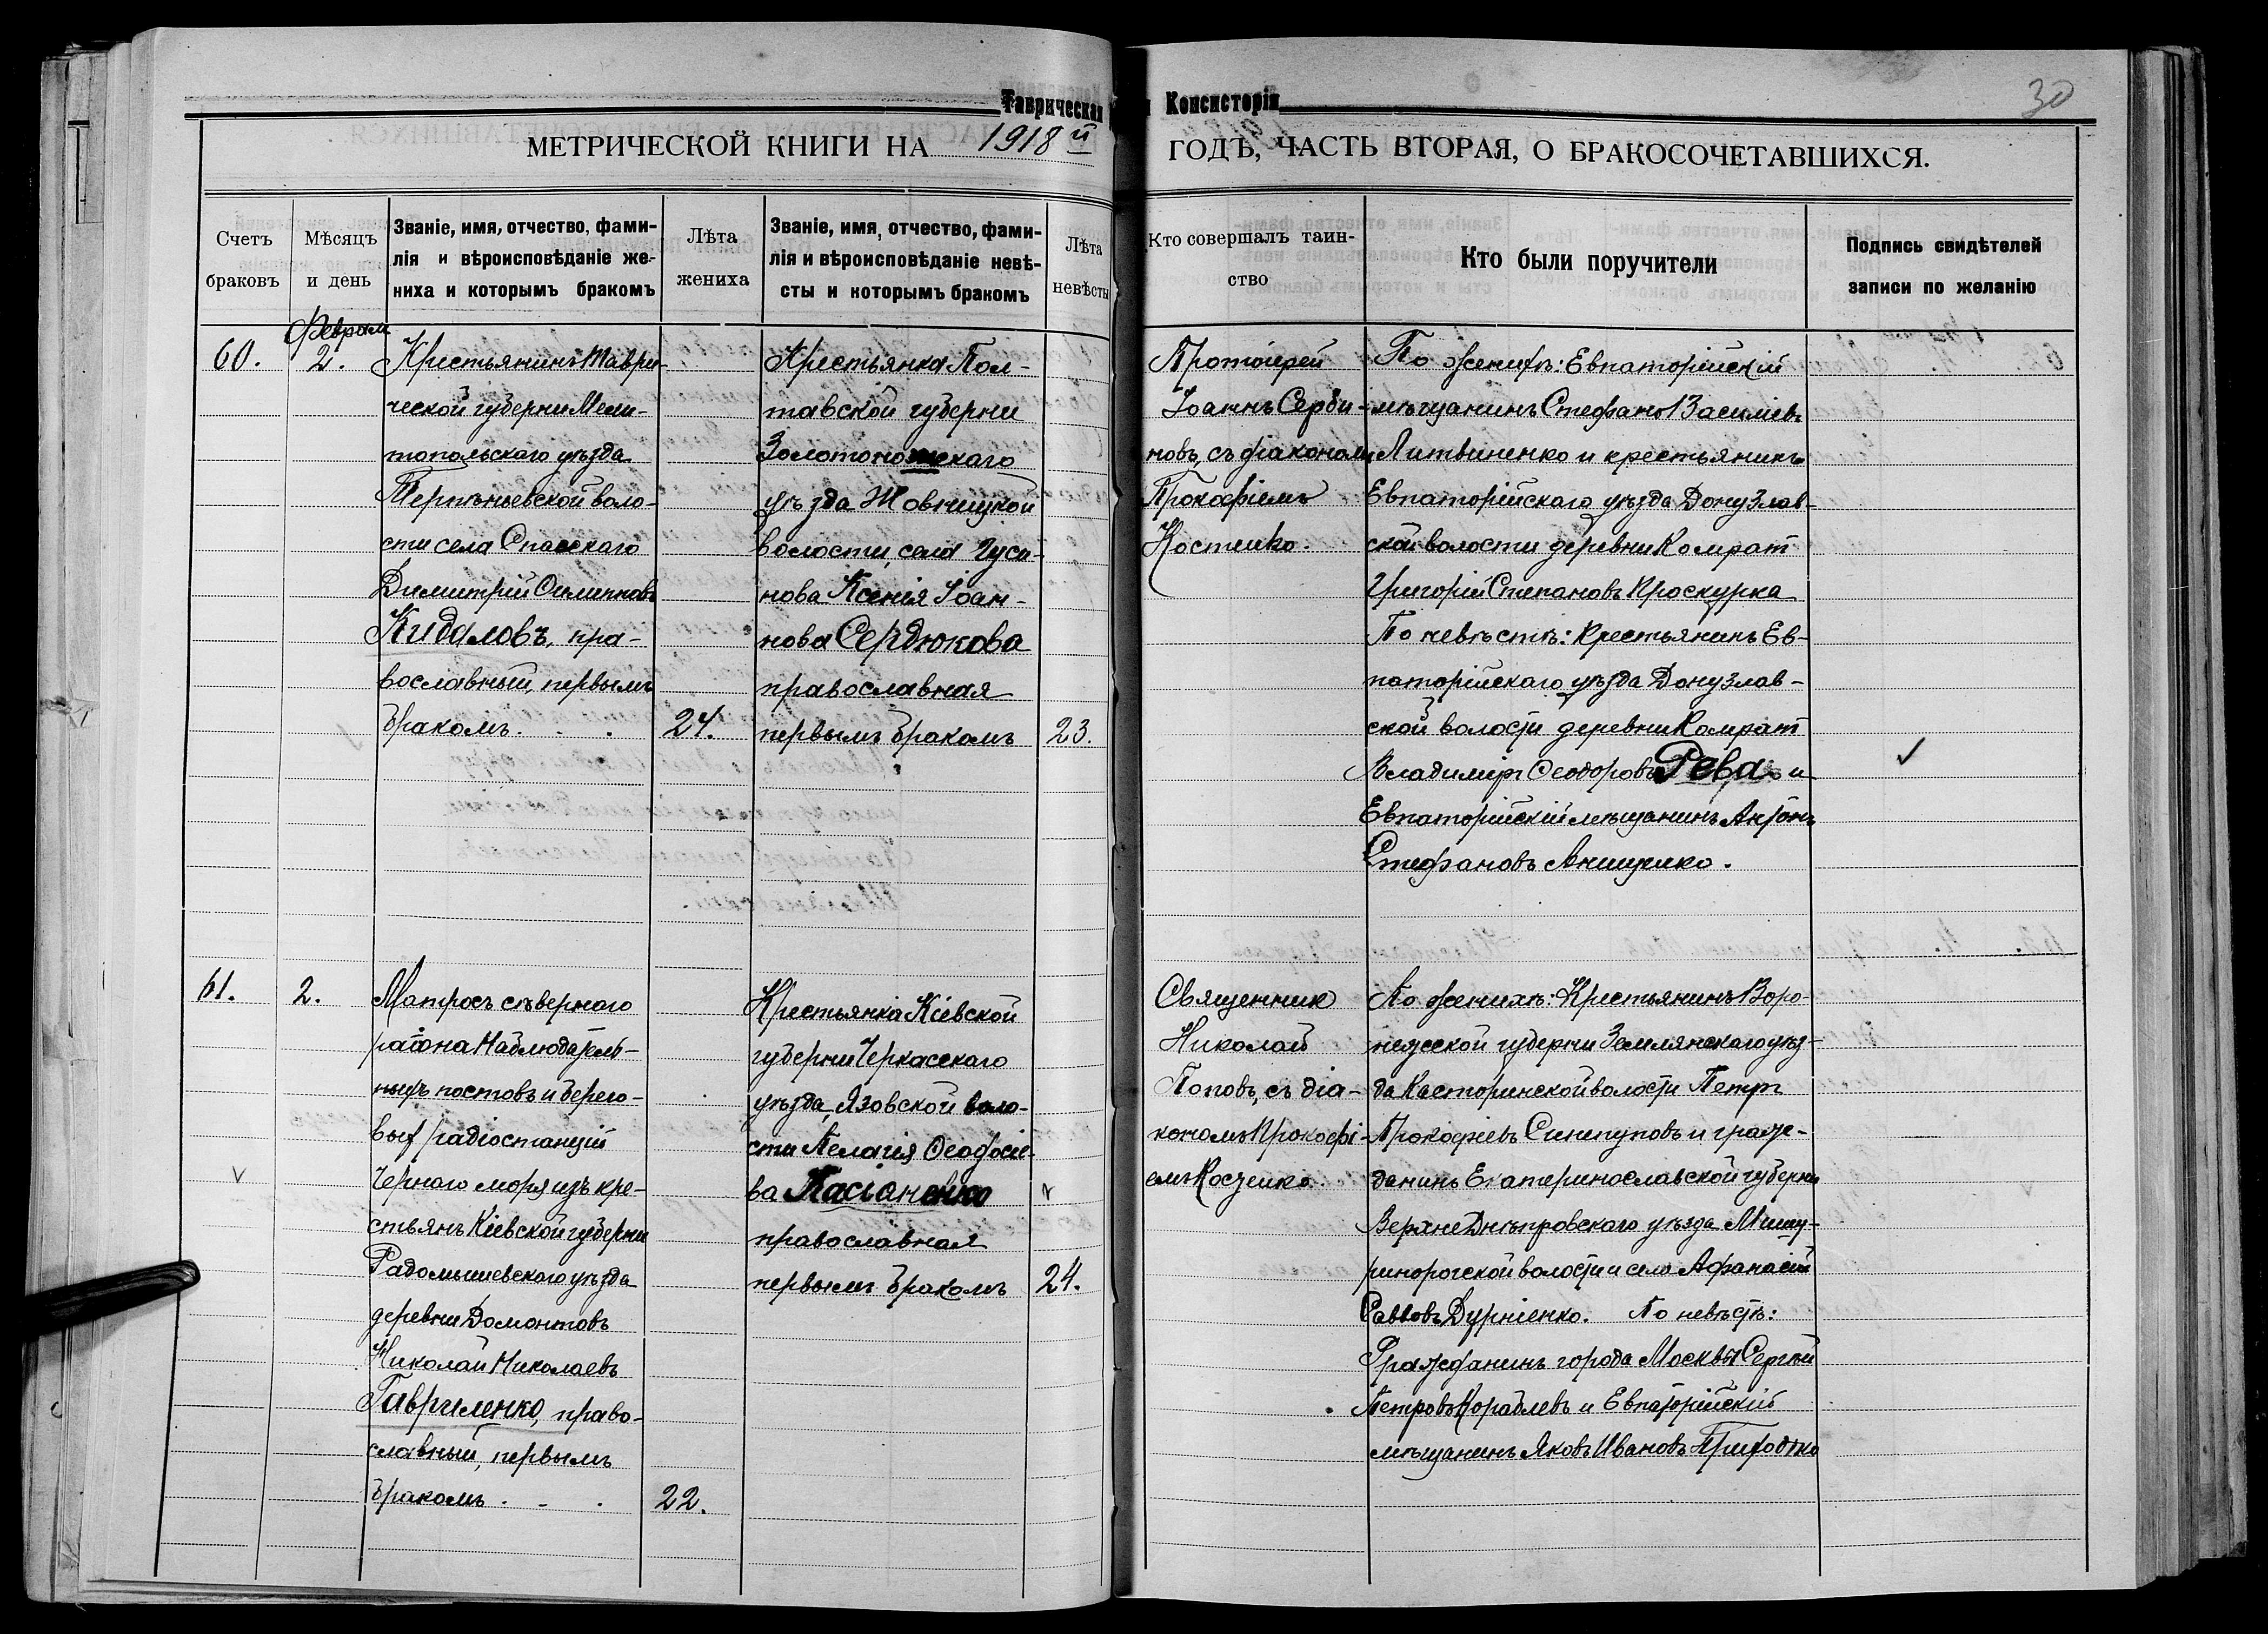 Таврическая Консисторія
30
МЕТРИЧЕСКОЙ КНИГИ НА 1918й ГОДЪ, ЧАСТЬ ВТОРАЯ, О БРАКОСОЧЕТАВШИХСЯ.
Счетъ
браковъ
Мѣсяцъ
и день
Званіе, имя, отчество, фами-
лія и вѣроисповѣданіе же-
ниха и которымъ бракомъ
Лѣта
жениха
Званіе, имя, отчество, фами-
лія и вѣроисповѣданіе невѣ-
сты и которымъ бракомъ
Лѣта
невѣсты
Кто совершалъ таин-
ство
Кто были поручители
Подпись свидѣтелей
записи по желанію
60.
Феврал
2.
Крестьянинъ Таври-
ческой губерни Мели-
топольскаго уѣзда
Терпѣньевской воло-
сти села Спасскаго
Димитрій
Кидаловъ, пра-
вославный, первымъ
бракомъ. . .
24.
Крестьянка Пол-
тавской губерни
Золотоношскаго
уѣзда
волости, села Гуси-
нова Ксенія Іоан-
нова Сердюкова
православная
первымъ бракомъ
23.
Протоіерей
Іоаннъ Серби-
новъ, съ діакономъ
Прокофіемъ
Костенко.
По женихѣ: Евпаторійскій
мѣщанинъ Стефанъ Василіевъ
Литвиненко и крестьянинъ
Евпаторійскаго уѣзда Донузлав-
ской волости деревни Комрат
Григорій Степановъ Проскурка
По невѣстѣ: крестьянинъ Ев-
паторійскаго уѣзда Донузлав-
ской волости деревни Комрат
Владиміръ Ѳеодоровъ Рева и
Евпаторійскій мѣщанинъ Антонъ
Стефановъ Анищенко.
61.
2.
Матросъ сѣвернаго
района Наблюдатель-
ныхъ постовъ и берего-
вых радіостанцій
Чернаго моря изъ кре-
стьянъ Кіевской губерни
Радомышевскаго уѣзда
деревни Домонтовъ
Николай Николаевъ
Гавриленко, право-
славный, первымъ
бракомъ . . .
22.
Крестьянка Кіевской
губерни Черкасскаго
уѣзда, Язовской воло-
сти Пелагія Ѳеодосіе-
ва Касіаненко
православная
первымъ бракомъ
24.
Священник
Николай
Поповъ, съ діа-
кономъ Прокофі-
емъ Костенко.
По женихѣ: Крестьянинъ Воро-
нежской губерни Землянскаго уѣз-
да Касторинской волости Петръ
Прокофіевъ и граж-
данинъ Екатеринославской губерни
ВерхнеДнѣпровскаго уѣзда Мишу-
ринорогской волости и села Афанасій
Саввовъ Дурніенко. По невѣстѣ:
Гражданинъ города Москвы Сергѣй
Петровъ Кораблевъ и Евпаторійскій
мѣщанинъ Яковъ Ивановъ Приходько